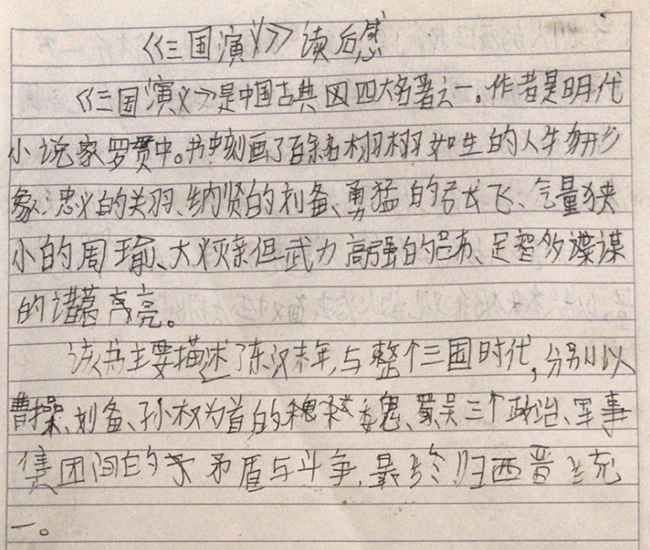 《三国演义》读后感
《三国演义》是中国古典四大名著之一。作者是明代
小说家罗贯中。书中刻画了百余名栩栩如生的人物形
象:忠义的关羽、纳贤的刘备、勇猛的张飞、气量狭
小的周瑜、大奸亲但武力高强的吕布、足智多谋
的诸葛亮。
该书主要描述了东汉末年与整个三国时代,分别以
曹操、刘备、孙权为首的魏、蜀、吴三个政治、军事
集团间的矛盾与斗争,最终归西晋统
一。